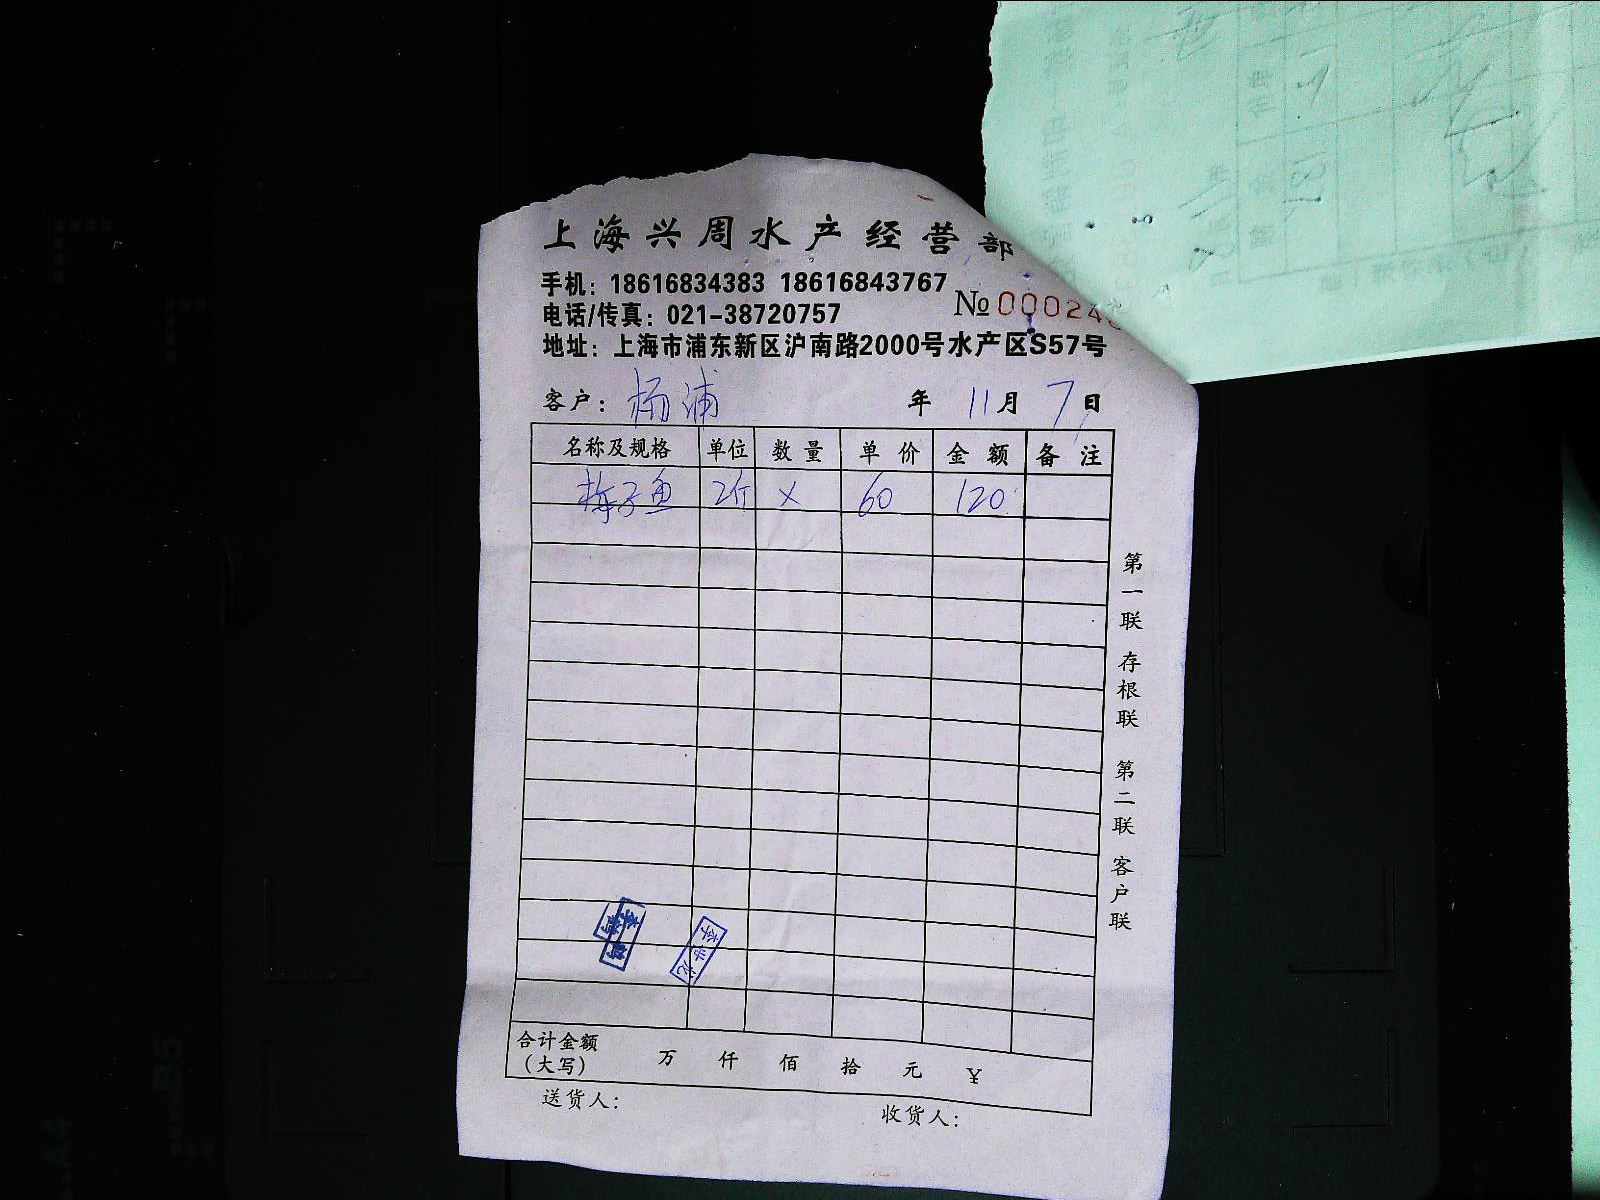 上海兴周水产经营部
手机：18616834383 18616843767
电话/传真：021-38720757
№00024
地址：上海市浦东新区沪南路2000号水产区S57号
客户：杨浦 年 11月 7日
名称及规格 单位 数量 单价 金额 备注
梅子鱼 2斤 × 60 120
第一联 存根联 第二联 客户联
合计金额
（大写） 万 仟 佰 拾 元 ¥
送货人： 收货人：